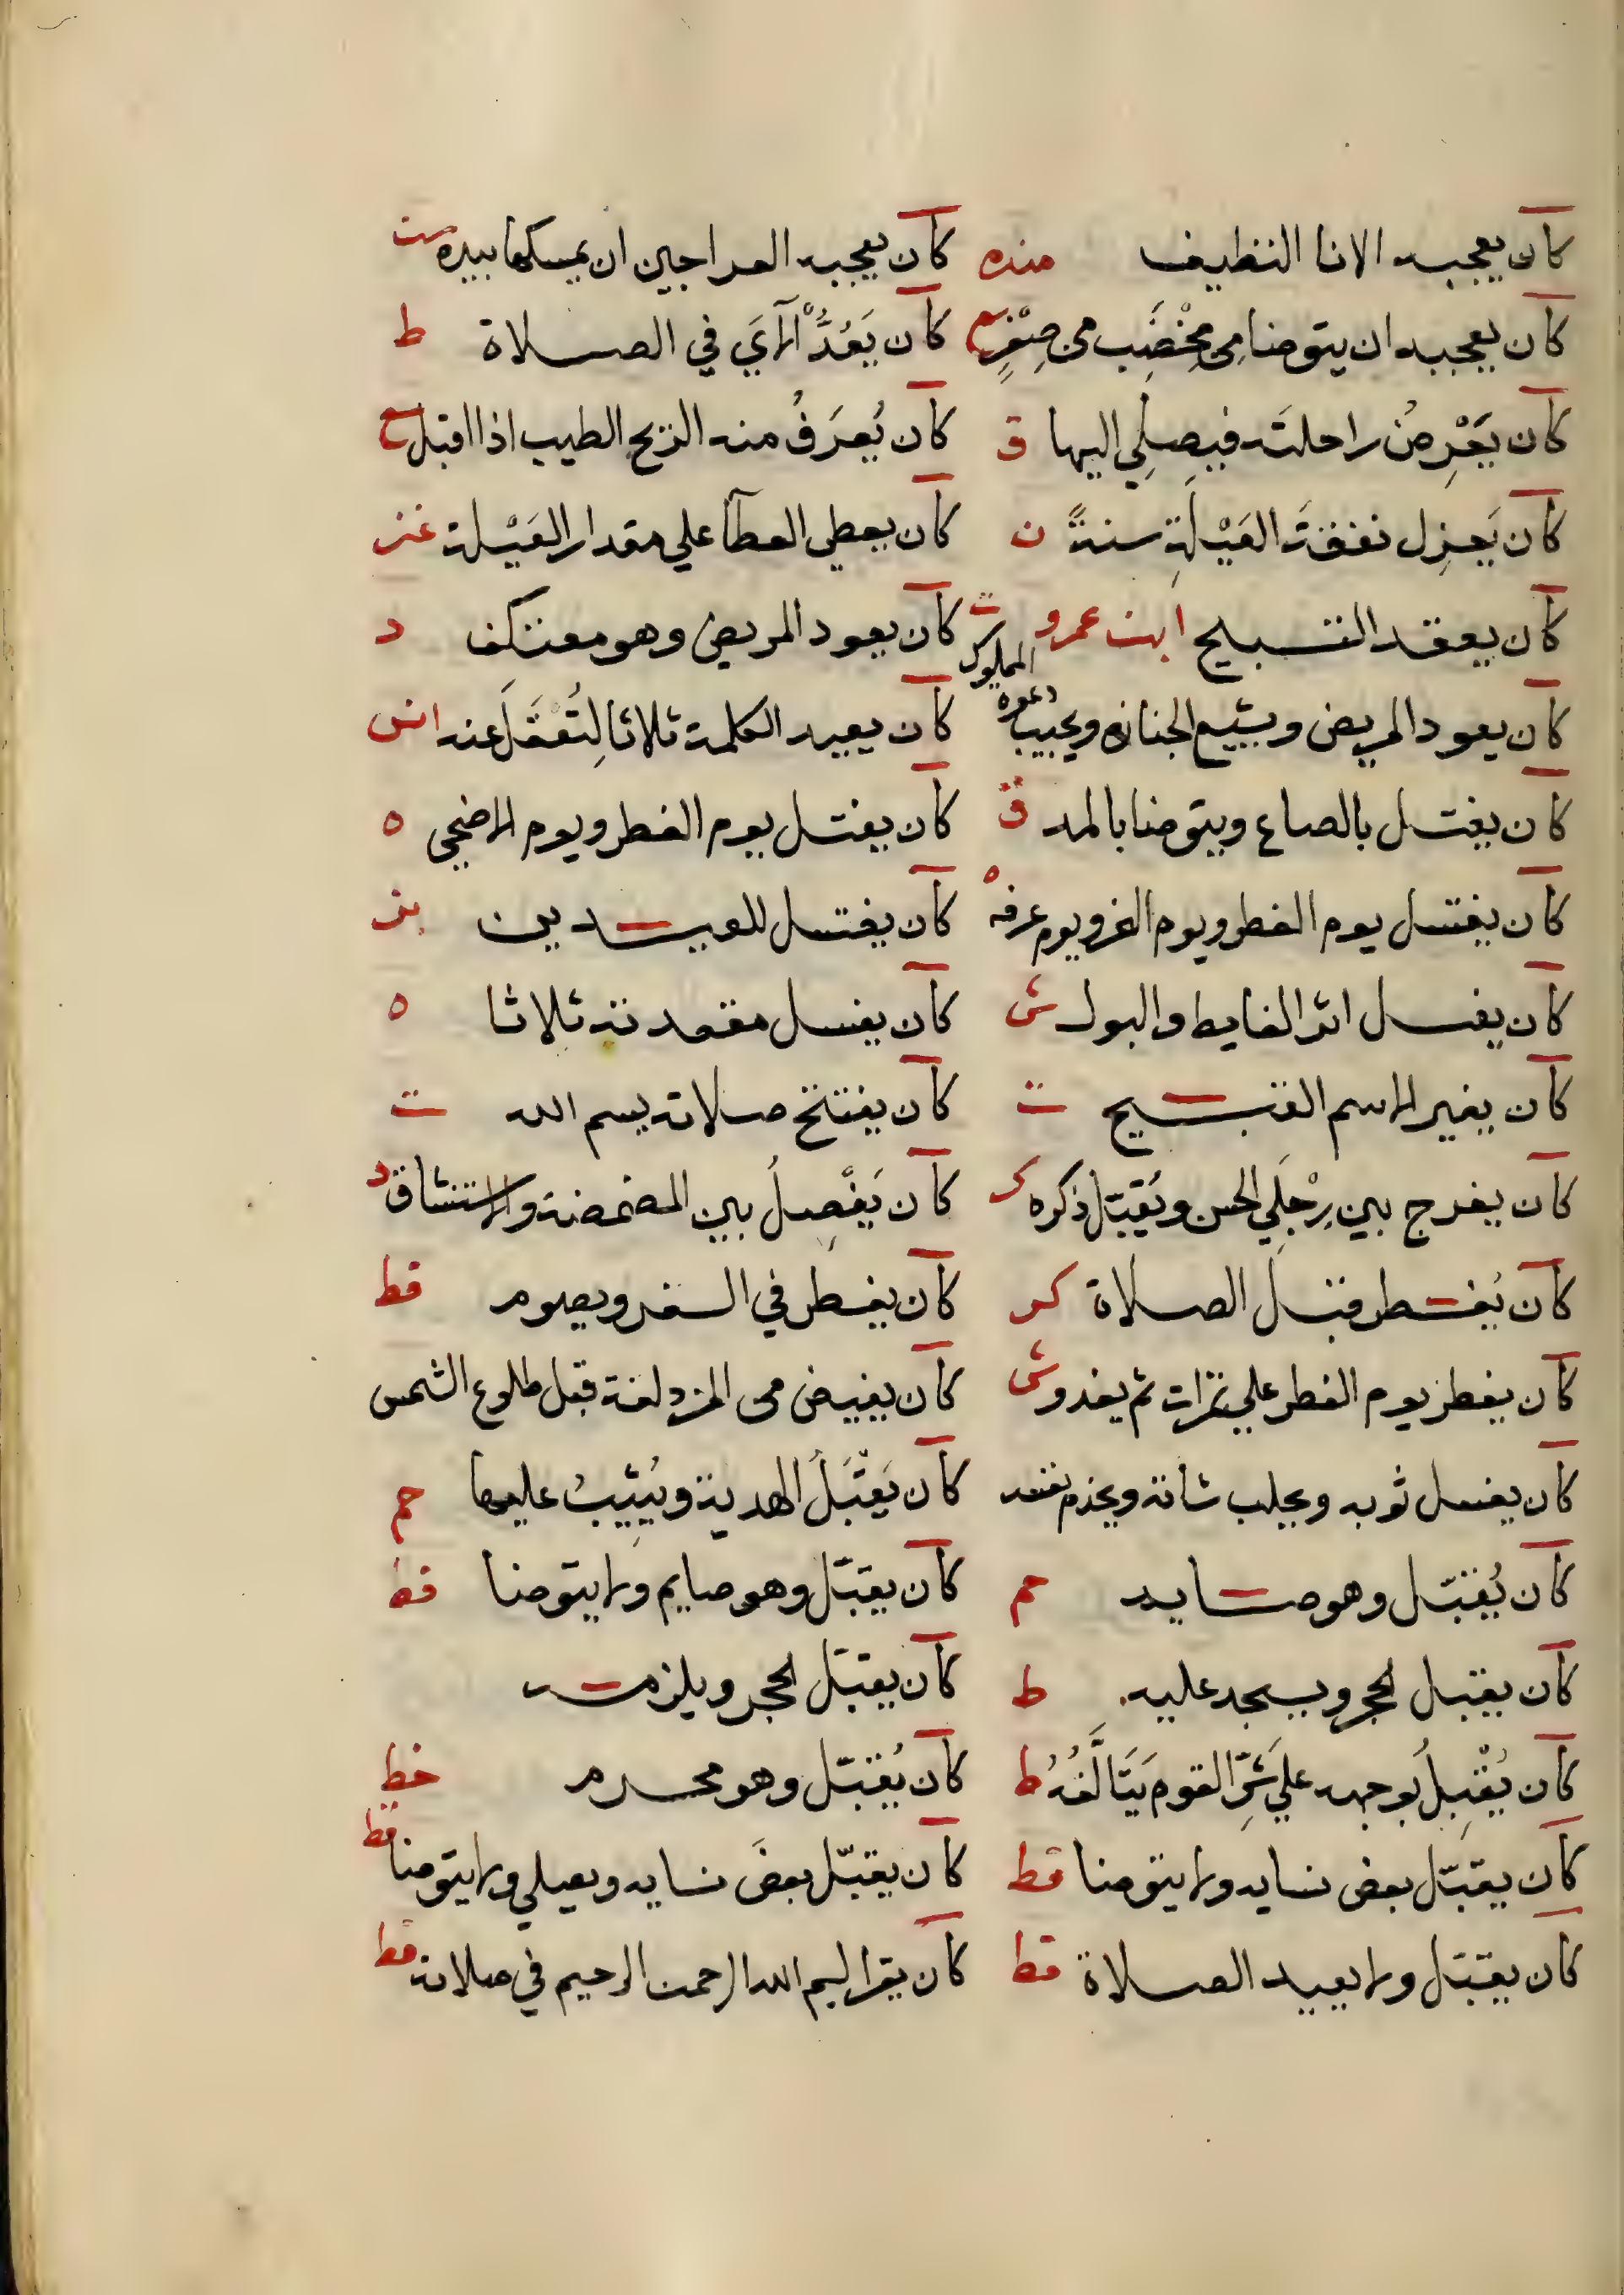 كان يعجبه الانا النظيف منده كان يعجبه العراجين ان يمسكها بيده ست
كان يعجبه ان يتوضا من مِخْضَبٍ من صِفْرٍ ع كان يَعُدُّ الآيَ في الصلاة ط
كان يَعْرِضُ راحلته فيصلي اليها ق كان يُعرَفُ منه الريح الطيب اذا اقبل ع
كان يَعزِل نفقةَ العَيْلَةِ سنةً ن كان يعطي العطآ علي مقدار العَيْلة غز
كان يعقد التسبيح ابن عمرو ت كان يعود المريض وهو معتكف د
كان يعود المريض ويشيع الجنازه ويجيب دعوه المملوك كان يعيد الكلمة ثلاثا لِتُعْقَلَ عنه انس
كان يغتسل بالصاع ويتوضا بالمد ق كان يغتسل يوم الفطر ويوم الاضحي ه
كان يغتسل يوم الفطر ويوم النحر ويوم عرفه ه كان يغتسل للعيدين بز
كان يغسل اثر الغايط والبول ش كان يغسل مقعدته ثلاثا ه
كان يغير الاسم القبيح ت كان يفتتح صلاته بسم الله ت
كان يفرج بين رِجْلَي الحسن ويُقَبّل ذكره ك كان يَفْصِلُ بين المضمضة والاستنشاق د
كان يُفطر قبل الصلاة كر كان يفطر في السفر ويصوم قط
كان يفطر يوم الفطر علي تمرات ثم يغدو ش كان يفيض من المزدلفة قبل طلوع الشمس
كان يغسل ثوبه ويحلب شاته ويخدم نفسه كان يَقْبَلُ الهدية ويُثِيبُ عليها حم
كان يُقبّل وهو صايم حم كان يقبّل وهو صايم ولا يتوضا قط
كان يقبل الحجر ويسجد عليه ط كان يقبّل الحجر ويلزمه
كان يُقْبِلُ بوجهه علي شَرِّ القوم يَتَالَّفُهُ ط كان يُقبّل وهو محرم خط
كان يقبّل بعض نسايه ولا يتوضا قط كان يقبّل بعضَ نسايه ويصلي ولا يتوضا قط
كان يقبّل ولا يعيد الصلاة قط كان يقرا بسم الله الرحمن الرحيم في صلاته قط